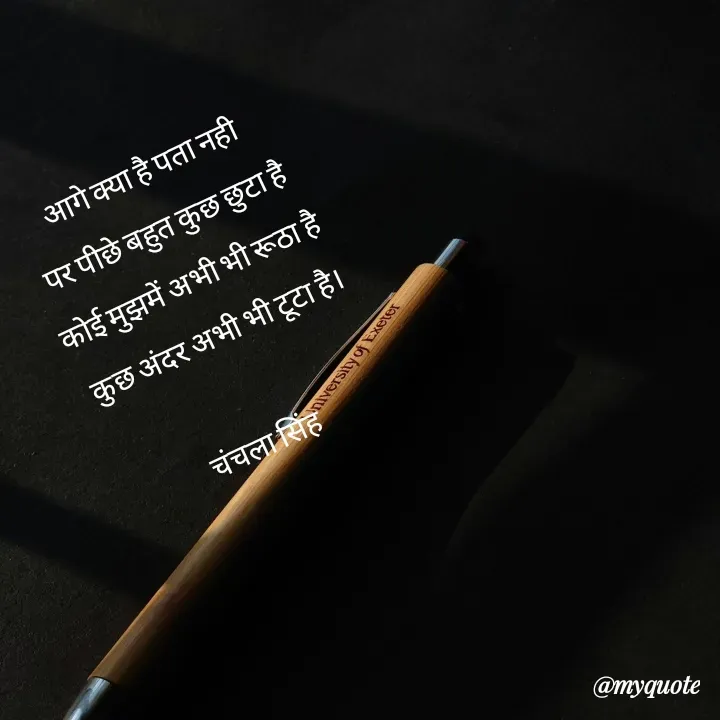 आगे क्या है पता नही
पर पीछे बहुत कुछ छुटा है
कोई मुझमें अभी भी रूठा है
कुछ अंदर अभी भी टूटा है।
चंचला सिंह
University of Exeter
@myquote